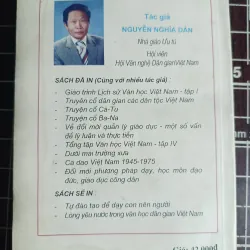 Tác giả
NGUYỄN NGHĨA DÂN
Nhà giáo Ưu tú
Hội viên
Hội Văn nghệ Dân gian Việt Nam
SÁCH ĐÃ IN (Cùng với nhiều tác giả) :
- Giáo trình Lịch sử Văn học Việt Nam - tập I
- Truyện cổ dân gian các dân tộc Việt Nam
- Truyện cổ Cà-Tu
- Truyện cổ Ba-Na
- Về đổi mới quản lý giáo dục - một số vấn
đề lý luận và thực tiễn
- Tổng tập Văn học Việt Nam - tập IV
- Dưới mái trường xưa
- Ca dao Việt Nam 1945-1975
- Đổi mới phương pháp dạy, học môn đạo
đức, giáo dục công dân
SÁCH SẼ IN :
- Tự đào tạo để dạy con nên người.
- Lòng yêu nước trong văn học dân gian Việt Nam